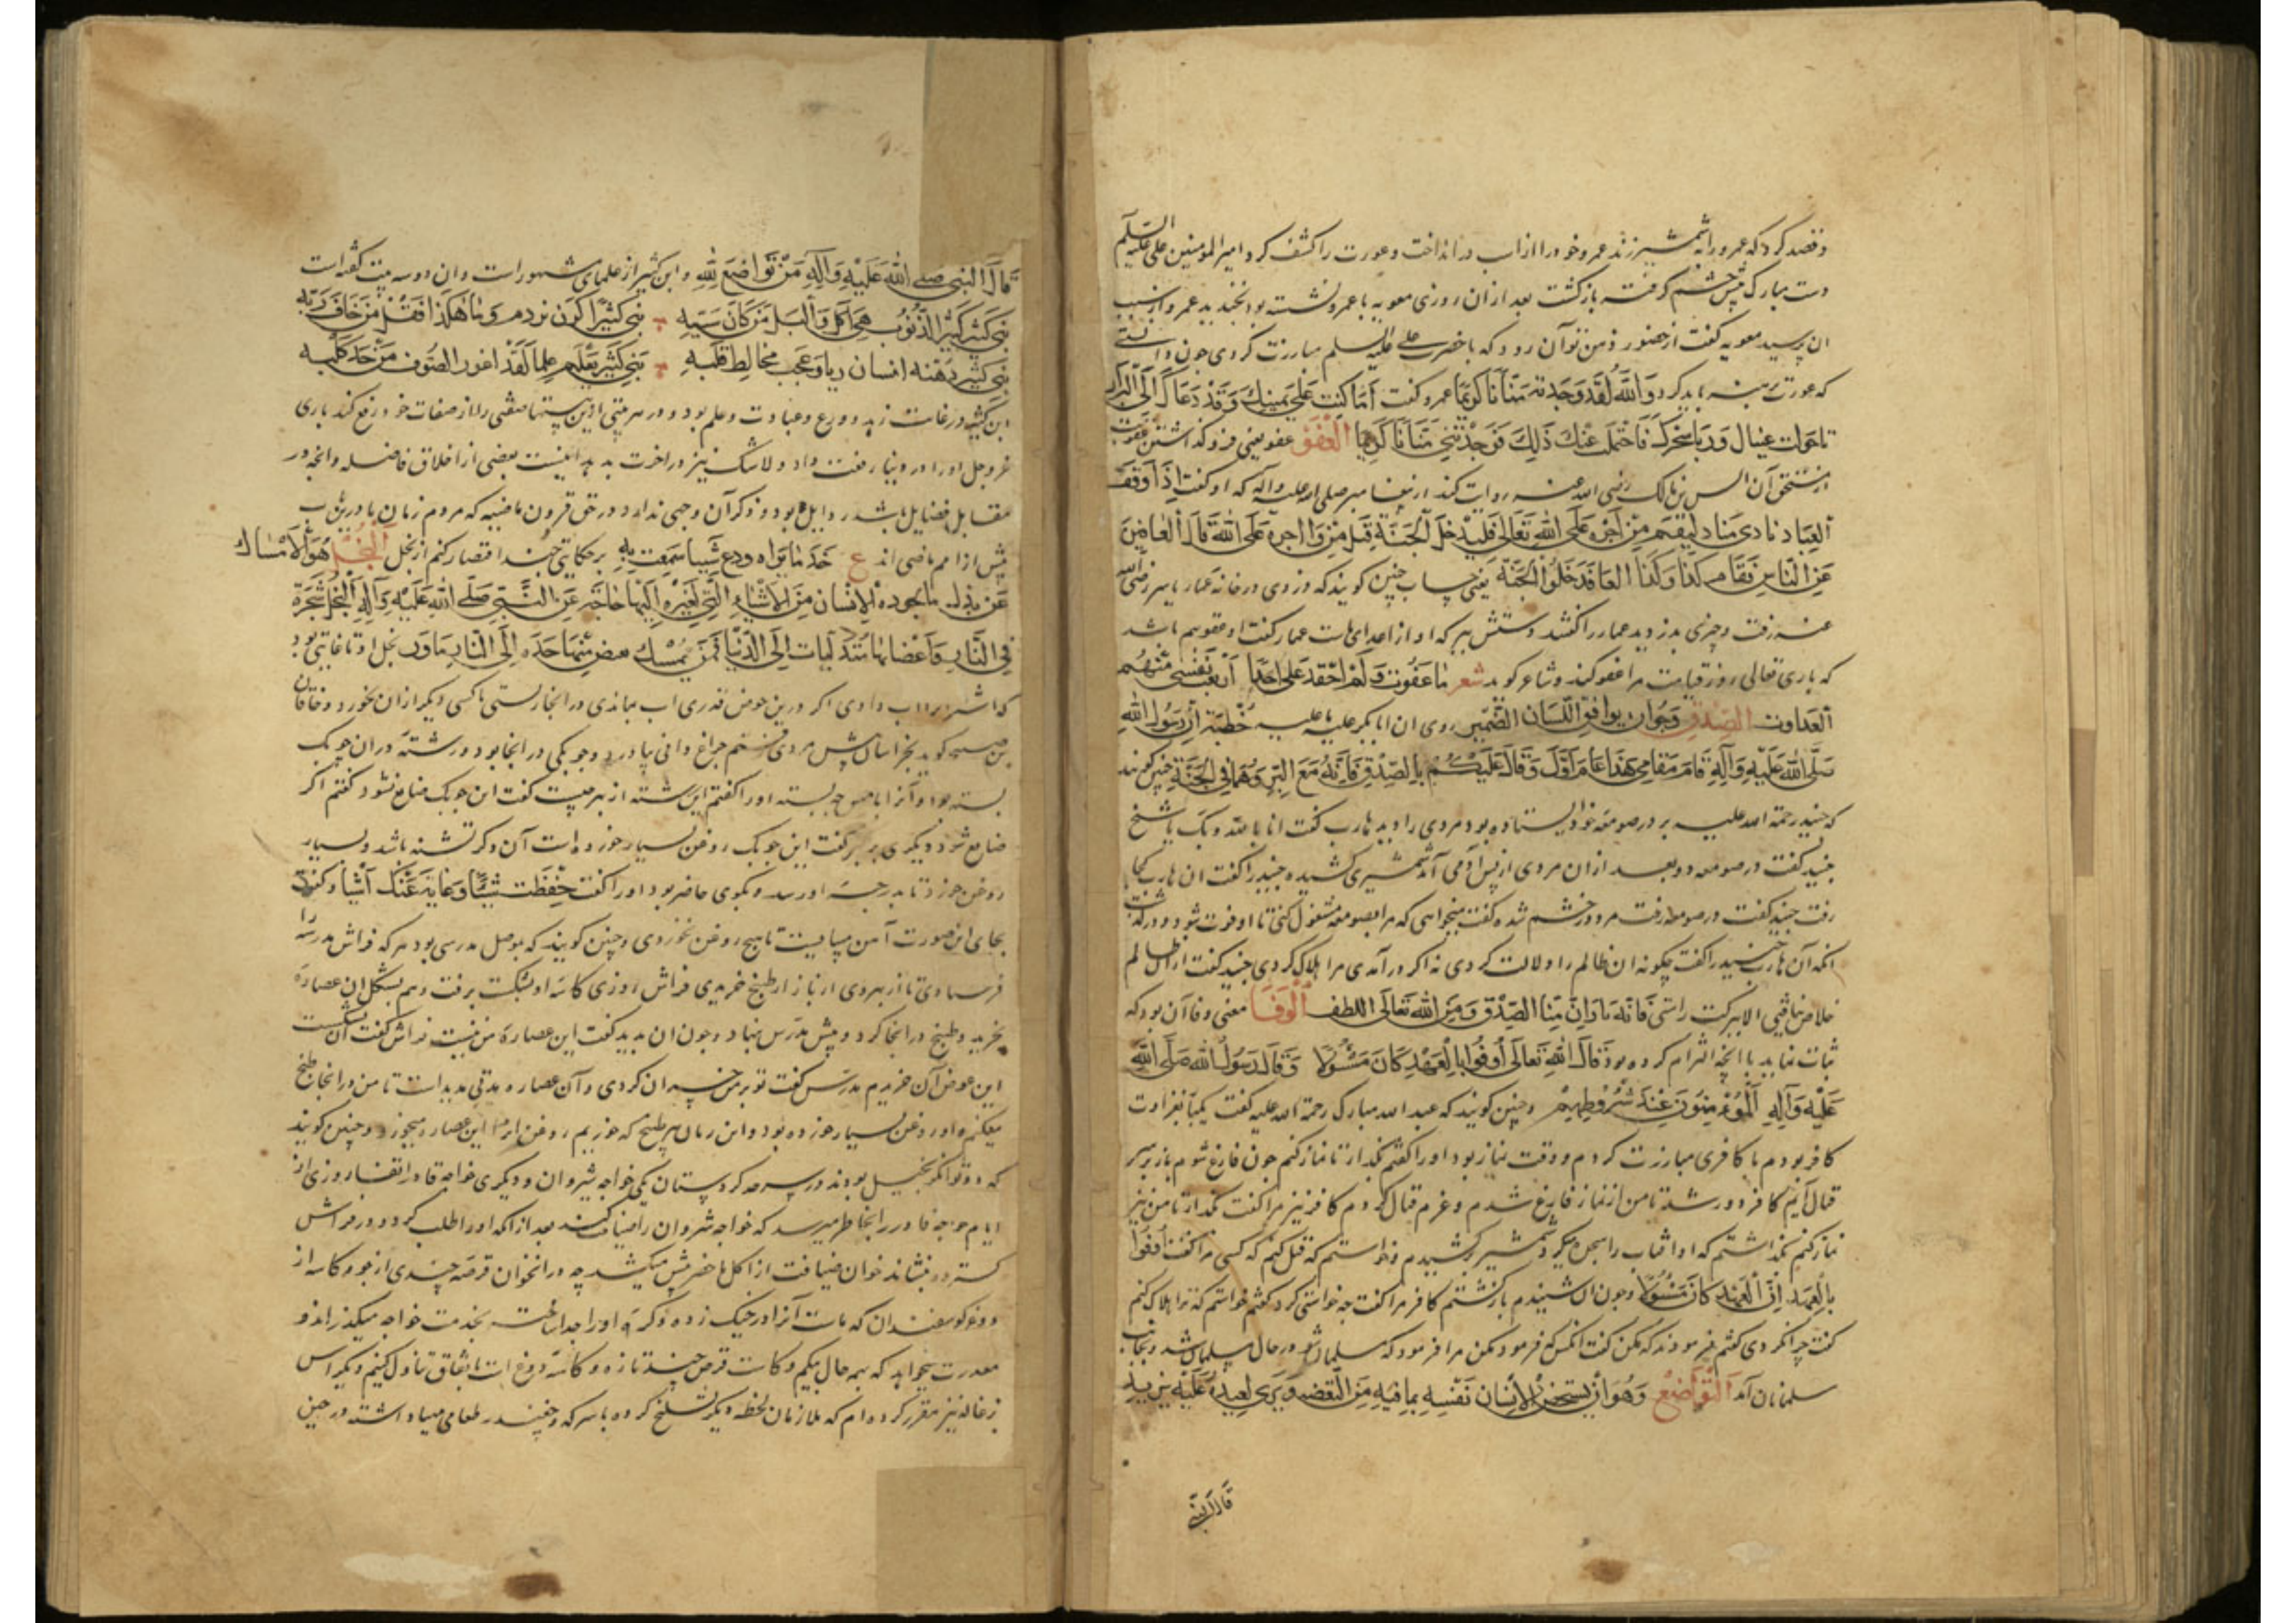 وقصد کرد که عمرو را به شمشیر زند عمرو خود را از اب در انداخت و عورت را کشف کرد امیر المومنین علی علیه السلم
دست مبارک پیش چشم گرفته بازگشت بعد ازان روزی معویه با عمرو نشسته بود بخندید عمرو از سبب
ان پرسید معویه گفت از حضور ذهن تو آن روز که با حضرت علی علیه السلم مبارزت کردی چون دانستی
که عورت برهنه باید کرد والله لقد وجدته منانا کریما عمرو گفت اما کنت علی یمینک وقد دعاک الی البراز
فاحولت عیناک سحرک ذلک فوجدتنی منانا کریما العفو عفو یعنی فروگذاشتن عقوبت
از مستحق آن انس بن مالک رضی الله عنه روایت کند از پیغامبر صلی الله علیه وآله که او گفت اذا وقف
العباد نادی مناد لیقم من اجره علی الله تعالی فلیدخل الجنة قیل من ذا اجره علی الله قال العافین
عن الناس فقام کذا وکذا الفا فدخلوا الجنة بغیر حساب چنین گویند که دزدی در خانه عمار یاسر رضی الله
عنه رفت و چیزی بدزدید عمار را گفتند دستش ببر که او از اعدای ماست عمار گفت او عفو میم باشد
که باری تعالی روز قیامت مرا عفو کند و شاعر گوید شعر ما عفوت ولم احقد علی احد نفسی منهم
العداوت الصدق وهوان یوافق اللسان الضمیر روی ان ابا بکر علیه خطبة ان رسول الله
صلی الله علیه وآله قام مقامی هذا عام اول وقال علیکم بالصدق فانه مع البر وهما فی الجنة چنین گویند
که جنید رحمة الله علیه بر در صومعه خود ایستاده بود مردی را دید هارب گفت انا بالله و بک یا شیخ
جنید گفت در صومعه رو بعد ازان مردی از پس او می آمد شمشیری کشیده جنید را گفت ان هارب کجا
رفت جنید گفت در صومعه رفت مرد در خشم شده گفت میخواهی که مرا بصومعه مشغول کنی تا او فوت شود و درگذشت
انگه آن هارب جنید را گفت چگونه ان ظالم را دلالت کردی نه اگر در آمدی مرا هلاک کردی جنید گفت از ان ظالم
خلاص نیافتی الا ببرکت راستی فانه منا الصدق ومن الله تعالی اللطف الوفا معنی وفا آن بود که
ثبات نماید با انچه التزام کرده بود قال الله تعالی اوفوا بالعهد کان مسئولا وقال رسول الله صلی الله
علیه وآله المؤمنون عند شروطهم و چنین گویند که عبد الله مبارک رحمة الله علیه گفت یکبار بغزاوت
کافر بودم با کافری مبارزت کردم و وقت نماز بود او را گفتم بگذار تا نماز کنم چون فارغ شوم باز بر سر
قتال آئیم کافر دور شد تا من از نماز فارغ شدم و عزم قتال کردم کافر نیز مرا گفت بگذار تا من نیز
نماز کنم بگذاشتم که او افتاب را سجده میکرد شمشیر برکشیدم و خواستم که قتل کنم که کسی مرا گفت اوفوا
بالعهد ان العهد کان مسئولا و چون ان شنیدم بازگشتم کافر مرا گفت چه خواستی کرد گفتم خواستم که ترا هلاک کنم
گفت چرا نکردی گفتم فرمودند که مکن گفت انکس که فرمود مکن مرا فرمود که مسلمان شو در حال مسلمان شد و بجانب
مسلمانان آمد التواضع وهوان یستحقر الانسان نفسه بما فیه من النقص ویری لعبد علیه
قال النبی
قال النبی صلی الله علیه وآله من تواضع لله و ابن کثیر از علمای مشهور است و ان دو سه بیت گفته است
بنی کثیر کثیر الذنوب من کان سبه بنی کثیر وما هکذا من خاف ربه
بنی کثیر دهته ریا و عجب مخالط قلبه بنی کثیر یعلم علما لقد اعوز الصوف من جز کلبه
ابن کثیر در غایت زهد و ورع و عبادت و علم بود و در هر بیتی ازین بیتها نقصی را از صفات خود رفع کند باری
عز وجل او را در دنیا رفعت داد و لاشک نیز در اخرت بدهد اینست بعضی از اخلاق فاضله و انچه در
مقابل فضایل باشد رذایل بود و ذکر آن وجهی ندارد در حق قرون ماضیه که مردم زمان ما درین باب
پیش از امم ماضی اند ع خذ ما تراه ودع شیئا سمعت به بر حکایتی چند اقتصار کنم از بخل البخل هو الامساک
عن بذل ما یجوده الانسان من الاشیاء التی لغیره الیها حاجة عن النبی صلی الله علیه وآله البخل شجرة
فی النار واعضانها متدلیات الی الدنیا فمن یمسک بعض منها جذبه الی النار مادر بخل او تا غایتی بود
که اشتر را اب دادی اگر درین حوض قدری اب بماندی در انجا رستی تا کسی دیگر ازان نخورد و خاقان
بن صبیح گوید بخراسان پیش مردی رفتم چراغ دانی بیاورد و چوبکی در انجا بود و رشته در ان چوبک
بسته بود و آنرا بسته او را گفتم این رشته از بهر چیست گفت این چوبک ضایع نشود گفتم اگر
ضایع شود دیگری ببر گفت این چوبک روغن بسیار خورده است آن دگر تشنه باشد و بسیار
روغن خورد تا بدرجه او رسد و یکوی حاضر بود او را گفت حفظت شیئا وغابت عنک اشیاء گفت
بجای این صورت آهن میبایست تا هیچ روغن نخوردی و چنین گویند که بموصل مدرسی بود هرکه فراش مدرسه را
فرستادی تا از بهر وی از بازار طبخ خریدی فراش روزی کاسه او بشکست برفت و هم بشکل ان عصاره
بخرید و طبخ در انجا کرد و پیش مدرس نهاد و چون ان بدید گفت این عصاره من نیست فراش گفت آن بشکست
این عوض آن خریدم مدرس گفت تو بر من خسران کردی و آن عصاره مدتی مدید است تا من در انجا طبخ
میکنم و او روغن بسیار خورده بود و این زمان هر طبخ که خوریم روغن او را این عصاره میخورد و چنین گویند
که دو توانگر بخیل بودند در سرحد کردستان یکی خواجه شیروان و دیگری خواجه قادر اتفاقا روزی از
ایام خواجه قادر را بخاطر میرسد که خواجه شیروان را ضیافت کند بعد از انکه او را طلب کرد و در فراش
گسترده بنشاند خوان ضیافت از اکل ماحضر پیش میکشد چه در انخوان قرصه چندی از جو و کاسه از
دوغ گوسفندان که ماست آنرا در خیک زده و کره او را جدا ساخته بخدمت خواجه میگذراند و
معذرت میخواهد که بهر حال بیکم وکاست قرص چند تازه و کاسه دوغ است باتفاق تناول کنیم و دیگر اس
بزغاله نیز مقرر کرده ام که ملازمان لحظه دیگر تسلیخ کرده با سرکه و چغندر طعامی مهیا داشته در حین